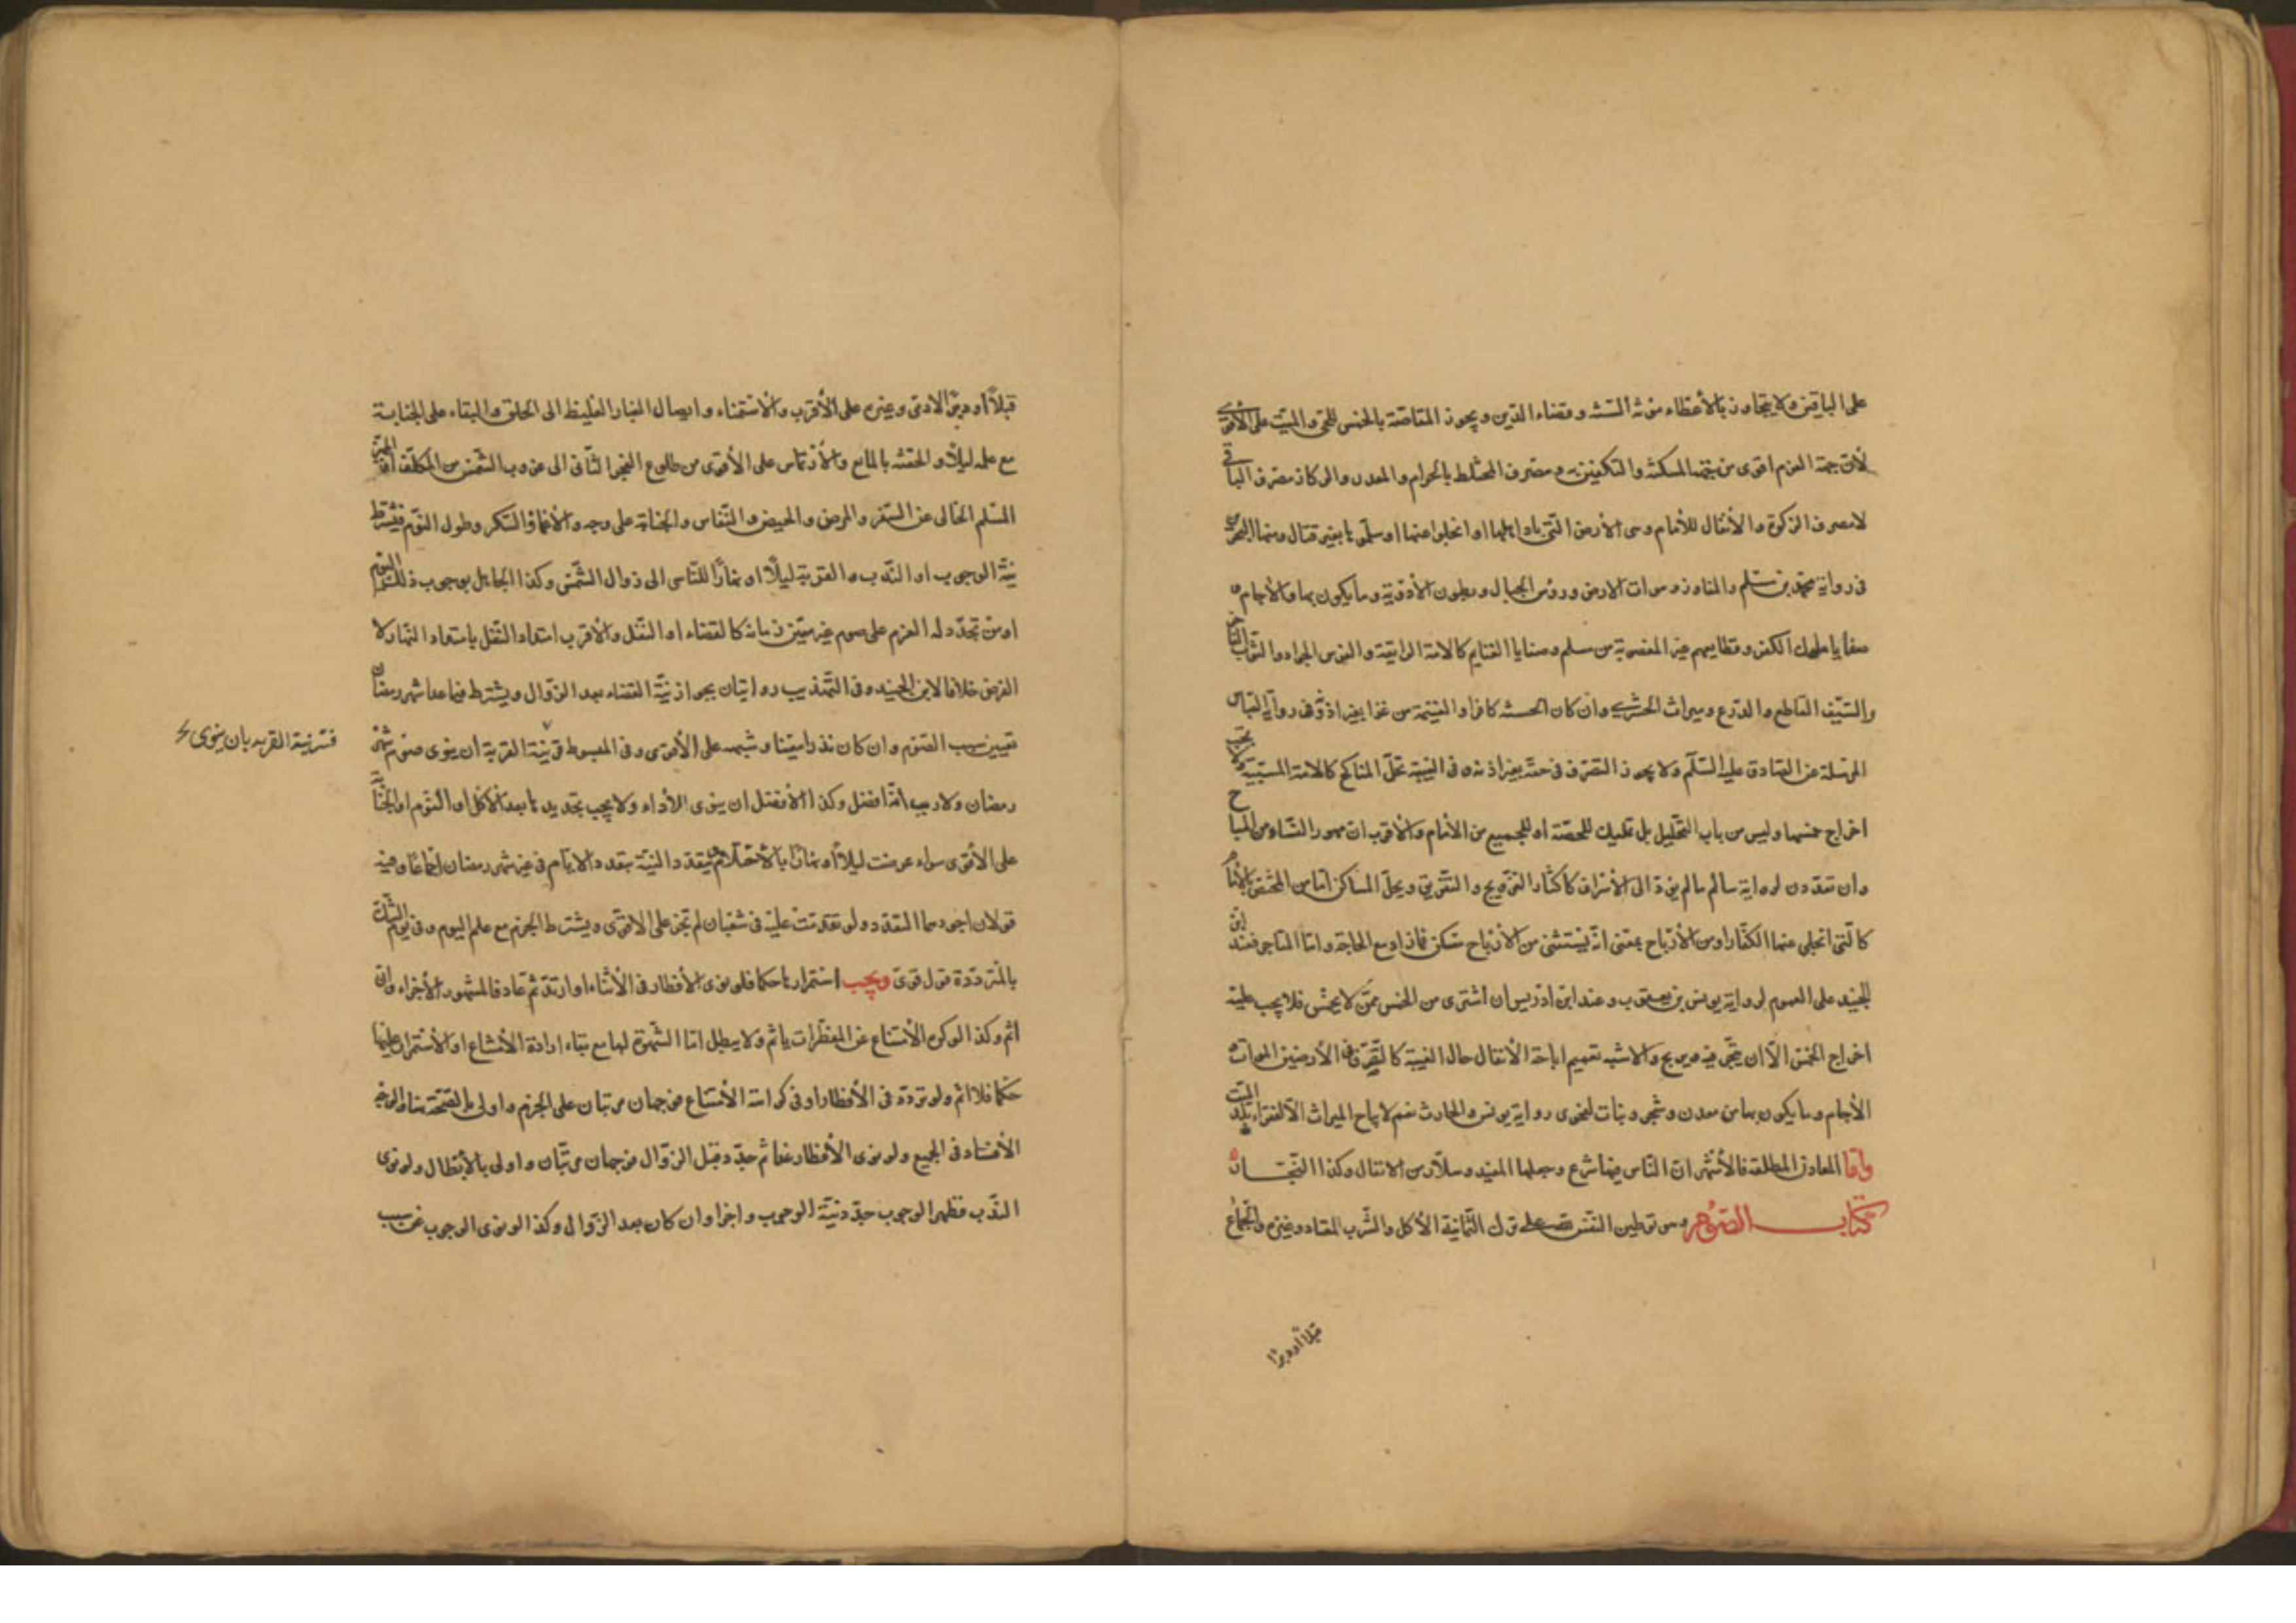 على الباقين ولا يتجاوز بالأعطاء مؤنة السنة وقضاء الدين ويجوز المقاصّة بالخمس للحيّ والميّت على الأقوى
لأنّ جهة الغرم اقوى من جهة المسكنة والتكفين ومصرف المختلط بالحرام والمعدن والركاز مصرف الباقي
لا مصرف الزكوة والأنفال للأمام وهى الأرض التي باد اهلها او انجلوا عنها او سلّموها بغير قتال ومنها البحرين
فى رواية محمّد بن مسلم والمفاوز وموات الارض ورؤس الجبال وبطون الأودية وما يكون بها والآجام و
صفايا ملوك الكفر وقطايعهم غير المغصوبة من مسلم وصفايا الغنايم كالامة الرايقة والفرس الجواد والثوب الفاخر
والسّيف القاطع والدّرع وميراث الحشرى وان كان الحشرى كافرا والغنيمة من غزا بغير اذنه فى رواية العباس
المرسلة عن الصادق عليه السّلم ولا يجوز التصرف فى حقّه بغير اذنه وفى الغيبة تحلّ المناكح كالامة المسبيّة ولا يجب
اخراج خمسها وليس من باب التحليل بل تمليك للحصّة او للجميع من الأمام والأقرب ان مهور النساء من المباح
وان تعدّدن لرواية سالم ما لم يؤدّ الى الأسراف كاكثار التزويج والتفريق ويحلّ المساكن امّا من المختصّ بالأمام
كالّتى انجلى عنها الكفّار او من الأرباح بمعنى انّه يستثنى من الأرباح مسكن فمازاد مع الحاجة وامّا المتاجر فعند ابن
الجنيد على العموم لرواية يونس بن يعقوب وعند ابن ادريس ان اشترى من الخمس ممّن لا يخمّس فلا يجب عليه
اخراج الخمس الّا ان يتّجر فيه ويربح والاشبه تعميم اباحة الأنفال حال الغيبة كالتّصرّف فى الأرضين الموات و
الأجام وما يكون بها من معدن وشجر ونبات لفحوى رواية يونس والحارث نعم لا يباح الميراث الّا لفقراء بلد الميت
وامّا المعادن المطلقة فالأشهر انّ النّاس فيها شرع وجعلها المفيد وسلّار من الانفال وكذا البحار
كتاب الصّوم وهو توطين النفس على ترك الثمانية الأكل والشّرب المعتاد وغيره والجماع
قبلاً او دبرًا
قبلاً او دبرًا لآدمى وغيره على الأقرب والأستمناء وايصال الغبار الغليظ الى الحلق والبقاء على الجنابة
مع علمه ليلاً والحقنة بالمايع والأرتماس على الأقوى من طلوع الفجر الثّانى الى غروب الشّمس من المكلّف او المميّز
المسلم الخالى عن السّفر والمرض والحيض والنّفاس والجنابة على وجه والأغماء والسّكر وطول النّوم فيشترط
نيّة الوجوب او النّدب والقربة ليلًا او نهارًا للنّاسى الى زوال الشّمس وكذا الجاهل بوجوب ذلك اليوم
او من تجدّد له العزم على صوم غير متعيّن زمانه كالقضاء او النّفل والأقرب امتداد النّفل بامتداد النّهار لا
الفرض خلافا لابن الجنيد وفى التّهذيب روايتان بجواز نيّة القضاء بعد الزّوال ويشترط فيما عدا شهر رمضان
تعيين سبب الصّوم وان كان نذرا معيّنا وشبهه على الأقوى وفى المبسوط نيّة القربة ان ينوى صوم شهر
فسّر نيّة القربة بان ينوى
رمضان ولا ريب انّه افضل وكذا الأفضل ان ينوى الأداء ولا يجب تجديدها بعد الأكل او النّوم او الجنابة
على الأقوى سواء عرضت ليلاً او نهارًا بالأحتلام ويتعدّد النيّة بتعدّد الايّام فى غير شهر رمضان اجماعًا وفيه
قولان اجودهما التعدّد ولو تقدّمت عليه فى شعبان لم تجز على الاقوى ويشترط الجزم مع علم اليوم وفى يوم الشّك
بالمتردّدة قول قوى ويجب استمرارها حكما فلو نوى الأفطار فى الأثناء او ارتدّ ثمّ عاد فالمشهور الأجزاء وان
اثم وكذا لو كره الأمتناع عن المفطّرات ياثم ولا يبطل امّا الشّهوة لها مع بقاء ارادة الأمتناع او الأستمرار عليها
حكما فلا اثم ولو تردّد فى الأفطار او فى كراهة الأمتناع فوجهان مرتّبان على الجزم واولى بالصّحّة هنا والوجه
الأفساد فى الجميع ولو نوى الأفطار غدا ثم جدّد قبل الزّوال فوجهان مرتّبان واولى بالأبطال ولو نوى
النّدب فظهر الوجوب جدّد نيّة الوجوب واجزا وان كان بعد الزّوال وكذا لو نوى الوجوب عن سبب